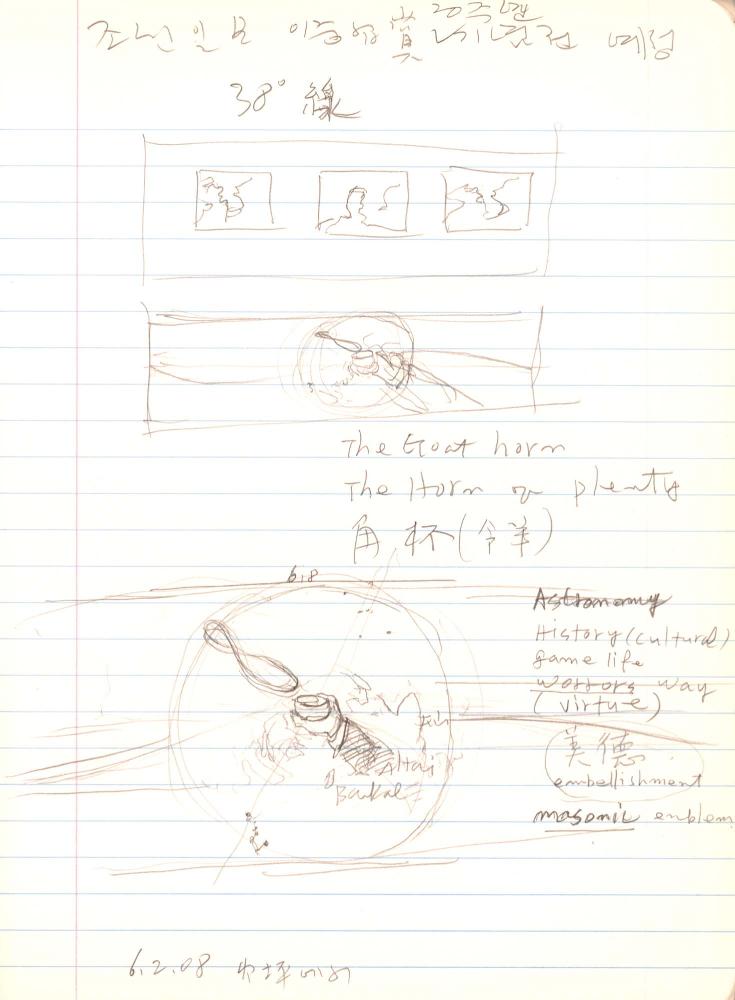 조선일보 이중섭賞 20주년 기념전 예정
38° 線
The Goat horn
The Horn of plenty
角杯(令羊)
6.8
Astronomy
History (cultural)
game life
way
(virtue)
美德
embellishment
masonic emblem
Altai
Baikal
6.2.08 에서